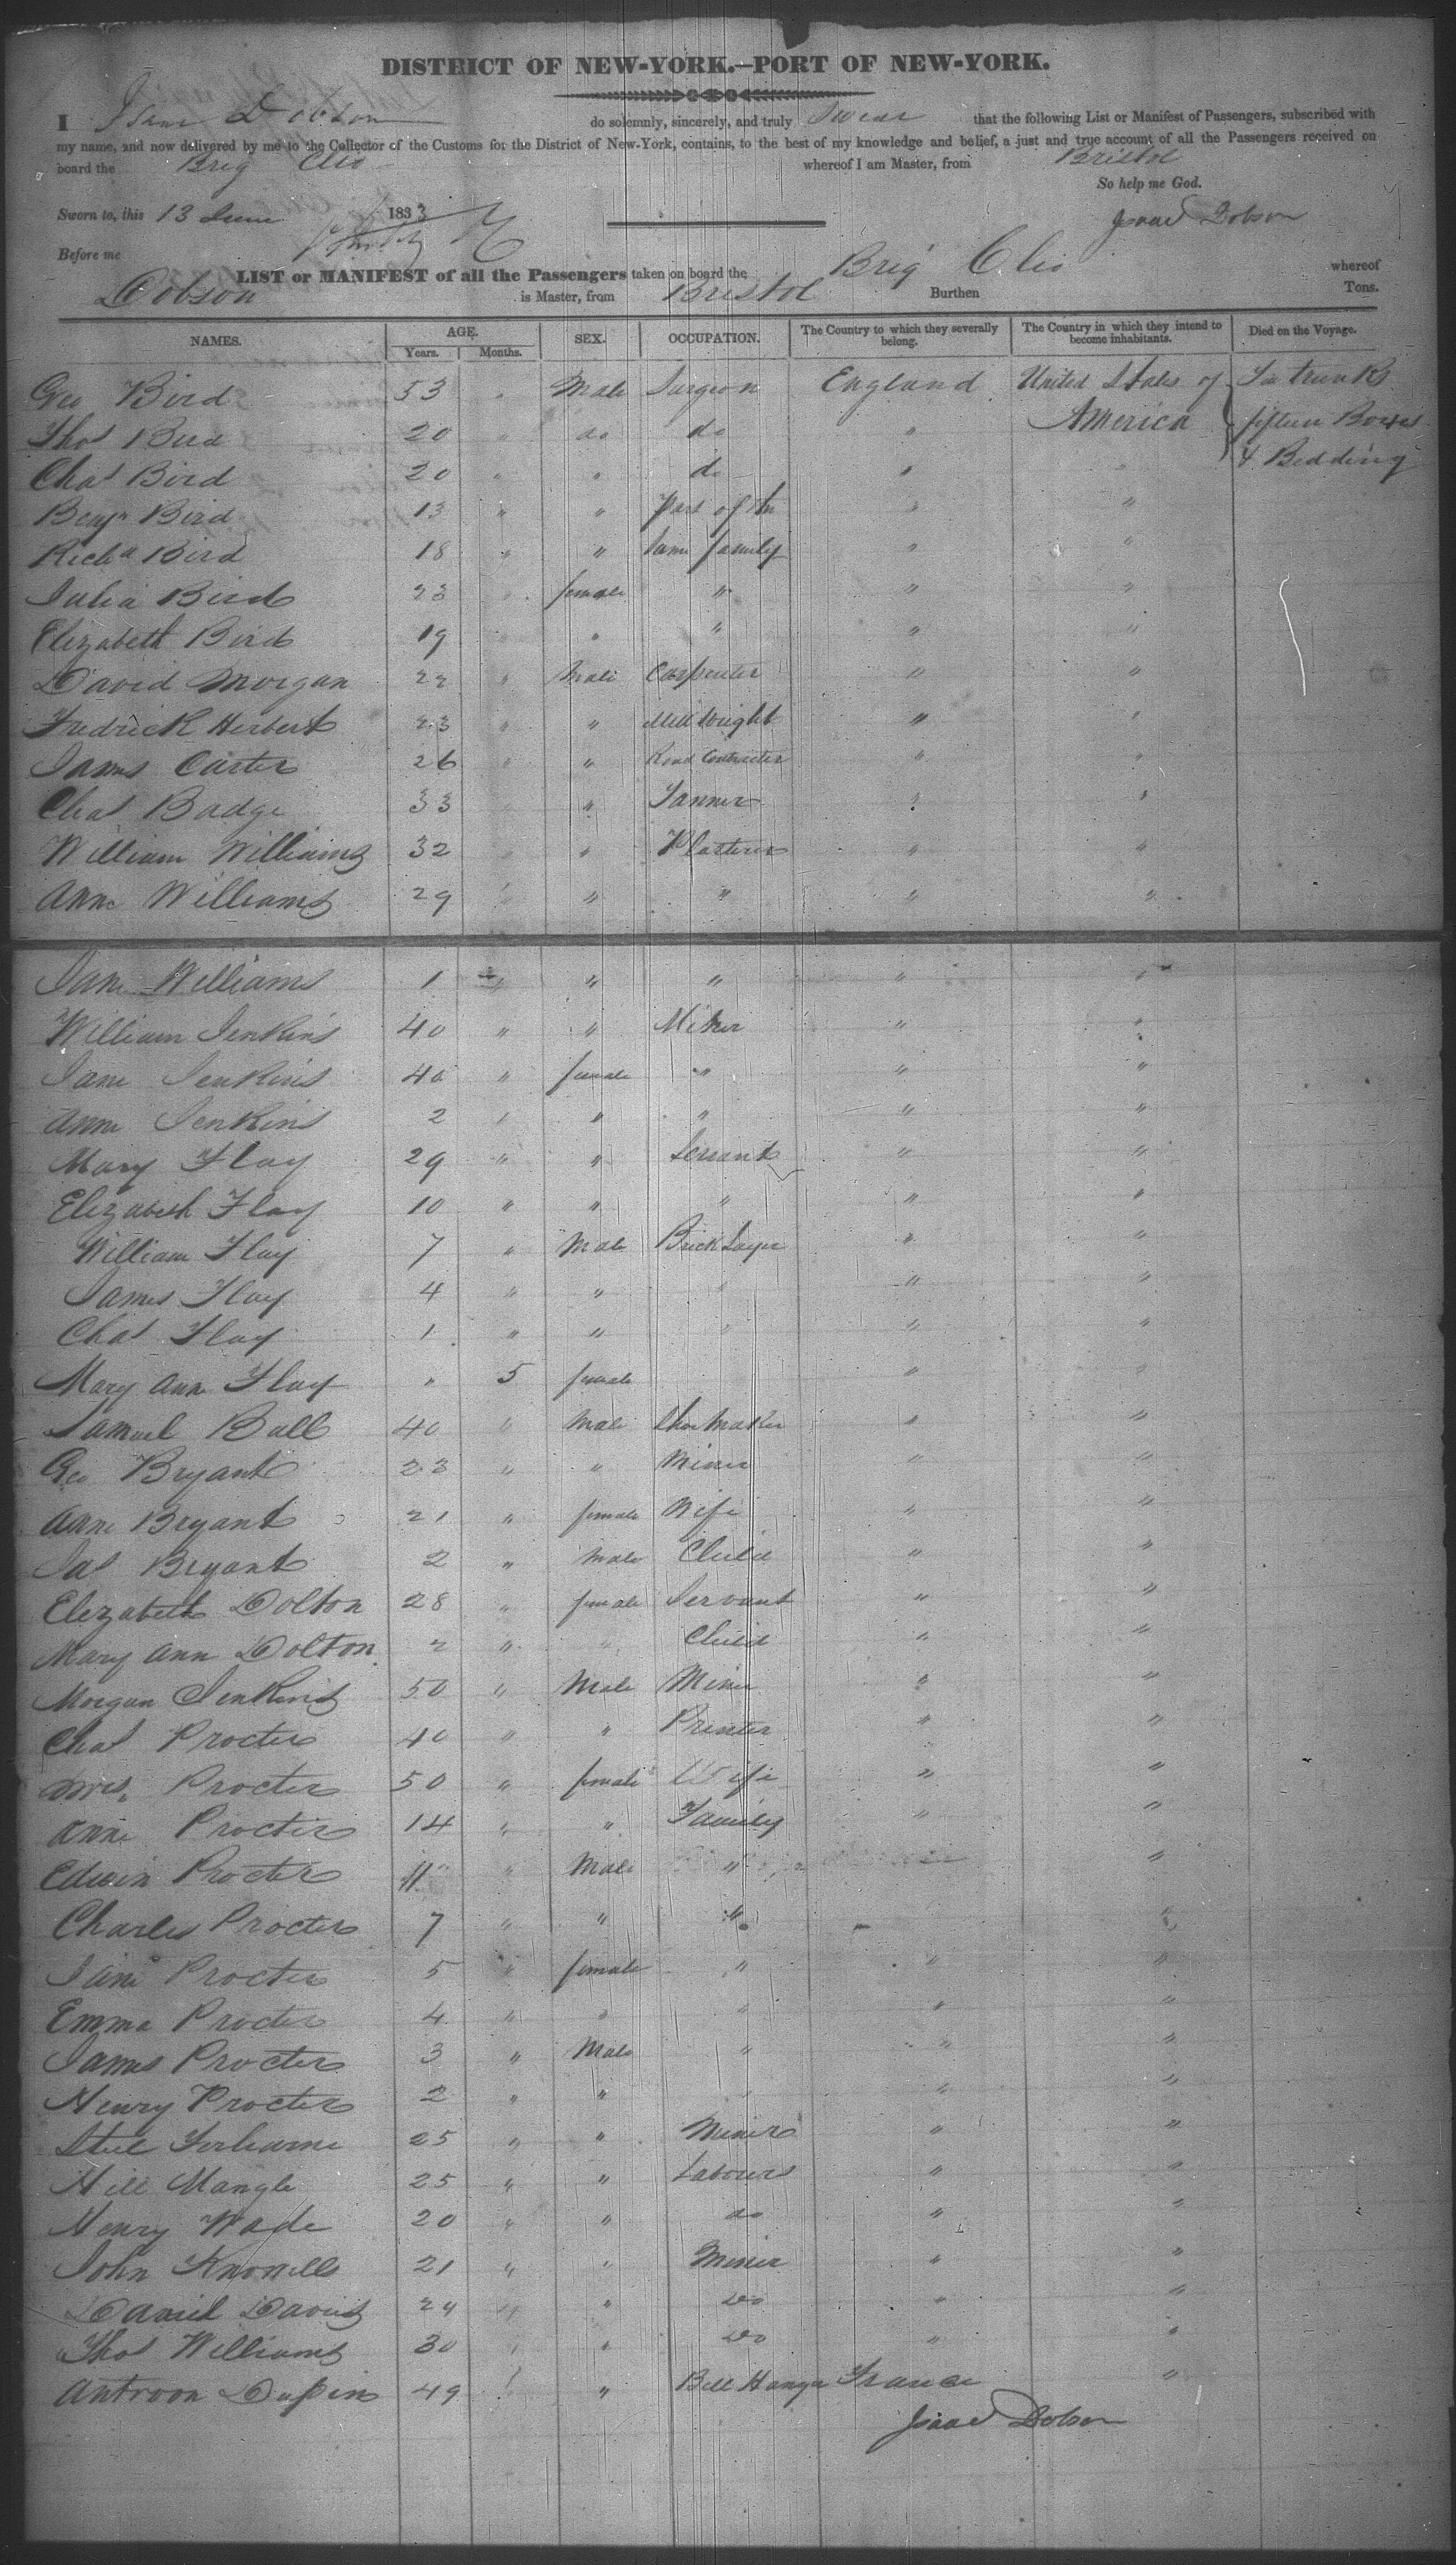 DISTRICT OF NEW-YORK.—PORT OF NEW-YORK.
I Isaac Dobson do solemnly, sincerely, and truly Swear that the following List or Manifest of Passengers, subscribed with
my name, and now delivered by me to the Collector of the Customs for the District of New-York, contains, to the best of my knowledge and belief, a just and true account of all the Passengers received on
board the Brig Clio whereof I am Master, from Bristol
So help me God.
Sworn to, this 13 June 1833
Isaac Dobson
Before me
LIST or MANIFEST of all the Passengers taken on board the Brig Clio whereof
Dobson is Master, from Bristol Burthen Tons.
NAMES. AGE. Years. Months. SEX. OCCUPATION. The Country to which they severally belong. The Country in which they intend to become inhabitants. Died on the Voyage.
Geo Bird 53 " Male Surgeon England United States of Six trunks
Thos Bird 20 " do do " America fifteen Boxes
Chas Bird 20 " " do " " & Bedding
Benjn Bird 13 " " Part of the " "
Richd Bird 18 " " Same family " "
Julia Bird 23 " female " " "
Elizabeth Bird 19 " " " " "
David Morgan 22 " Male Carpenter " "
Fredrick Herbert 23 " " Mill Wright " "
James Carter 26 " Road Contracter " "
Chas Badge 33 " " Tanner " "
William Williams 32 " " Plasterer " "
Anne Williams 29 " " " " "
Jane Williams 1 " " " " "
William Jenkins 40 " " Miner " "
Jane Jenkins 40 " female " " "
Anne Jenkins 2 " " " " "
Mary Flay 29 " " Servant " "
Elizabeth Flay 10 " " " " "
William Flay 7 " Male Brick Layer " "
James Flay 4 " " " " "
Chas Flay 1 " " " " "
Mary Ann Flay " 5 female " "
Samuel Ball 40 " Male Shoe Maker " "
Geo Bryant 23 " " Miner " "
Anne Bryant 21 " female Wife " "
Jas Bryant 2 " Male Child " "
Elizabeth Dolton 28 " female Servant " "
Mary Ann Dolton 2 " " Child " "
Morgan Jenkins 50 " Male Miner " "
Chas Procter 40 " " Printer " "
Mrs. Procter 50 " female Wife " "
Anne Procter 14 " " Family " "
Edwin Procter 11 " Male " "
Charles Procter 7 " " " "
Jane Procter 5 " female " " "
Emma Procter 4 " " " " "
James Procter 3 " Male " " "
Henry Procter 2 " " " " "
25 " " Miner " "
Mangle 25 " " Labourer " "
Henry Wade 20 " " do " "
John 21 " " Miner " "
Daniel Davis 24 " " Do " "
Thos Williams 30 " " Do " "
Antroon Dupin 49 " " Bell Hanger France "
Isaac Dobson